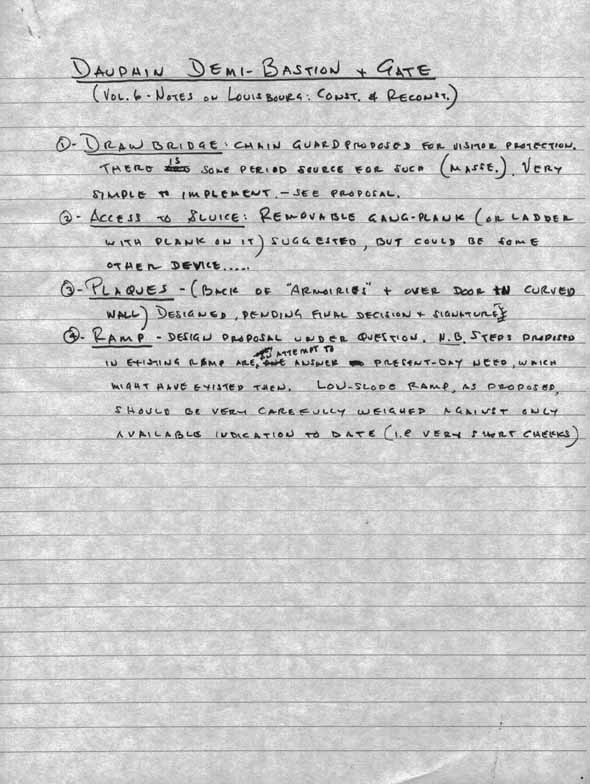 DAUPHIN DEMI-BASTION + GATE
(VOL. 6 - NOTES ON LOUISBOURG: CONST. & RECONST.)
①- DRAWBRIDGE: CHAIN GUARD PROPOSED FOR VISITOR PROTECTION.
THERE IS SOME PERIOD SOURCE FOR SUCH (MASSE.). VERY
SIMPLE TO IMPLEMENT. - SEE PROPOSAL.
②- ACCESS TO SLUICE: REMOVABLE GANG-PLANK (OR LADDER
WITH PLANK ON IT) SUGGESTED, BUT COULD BE SOME
OTHER DEVICE.....
③- PLAQUES - (BACK OF "ARMOIRIES" + OVER DOOR IN CURVED
WALL) DESIGNED, PENDING FINAL DECISION + SIGNATURE
④- RAMP - DESIGN PROPOSAL UNDER QUESTION. N.B. STEPS PROPOSED
IN EXISTING RAMP ARE, AN ATTEMPT TO ANSWER PRESENT-DAY NEED, WHICH
MIGHT HAVE EXISTED THEN. LOW-SLOPE RAMP, AS PROPOSED,
SHOULD BE VERY CAREFULLY WEIGHED AGAINST ONLY
AVAILABLE INDICATION TO DATE (I.E VERY SHORT CHEEKS)